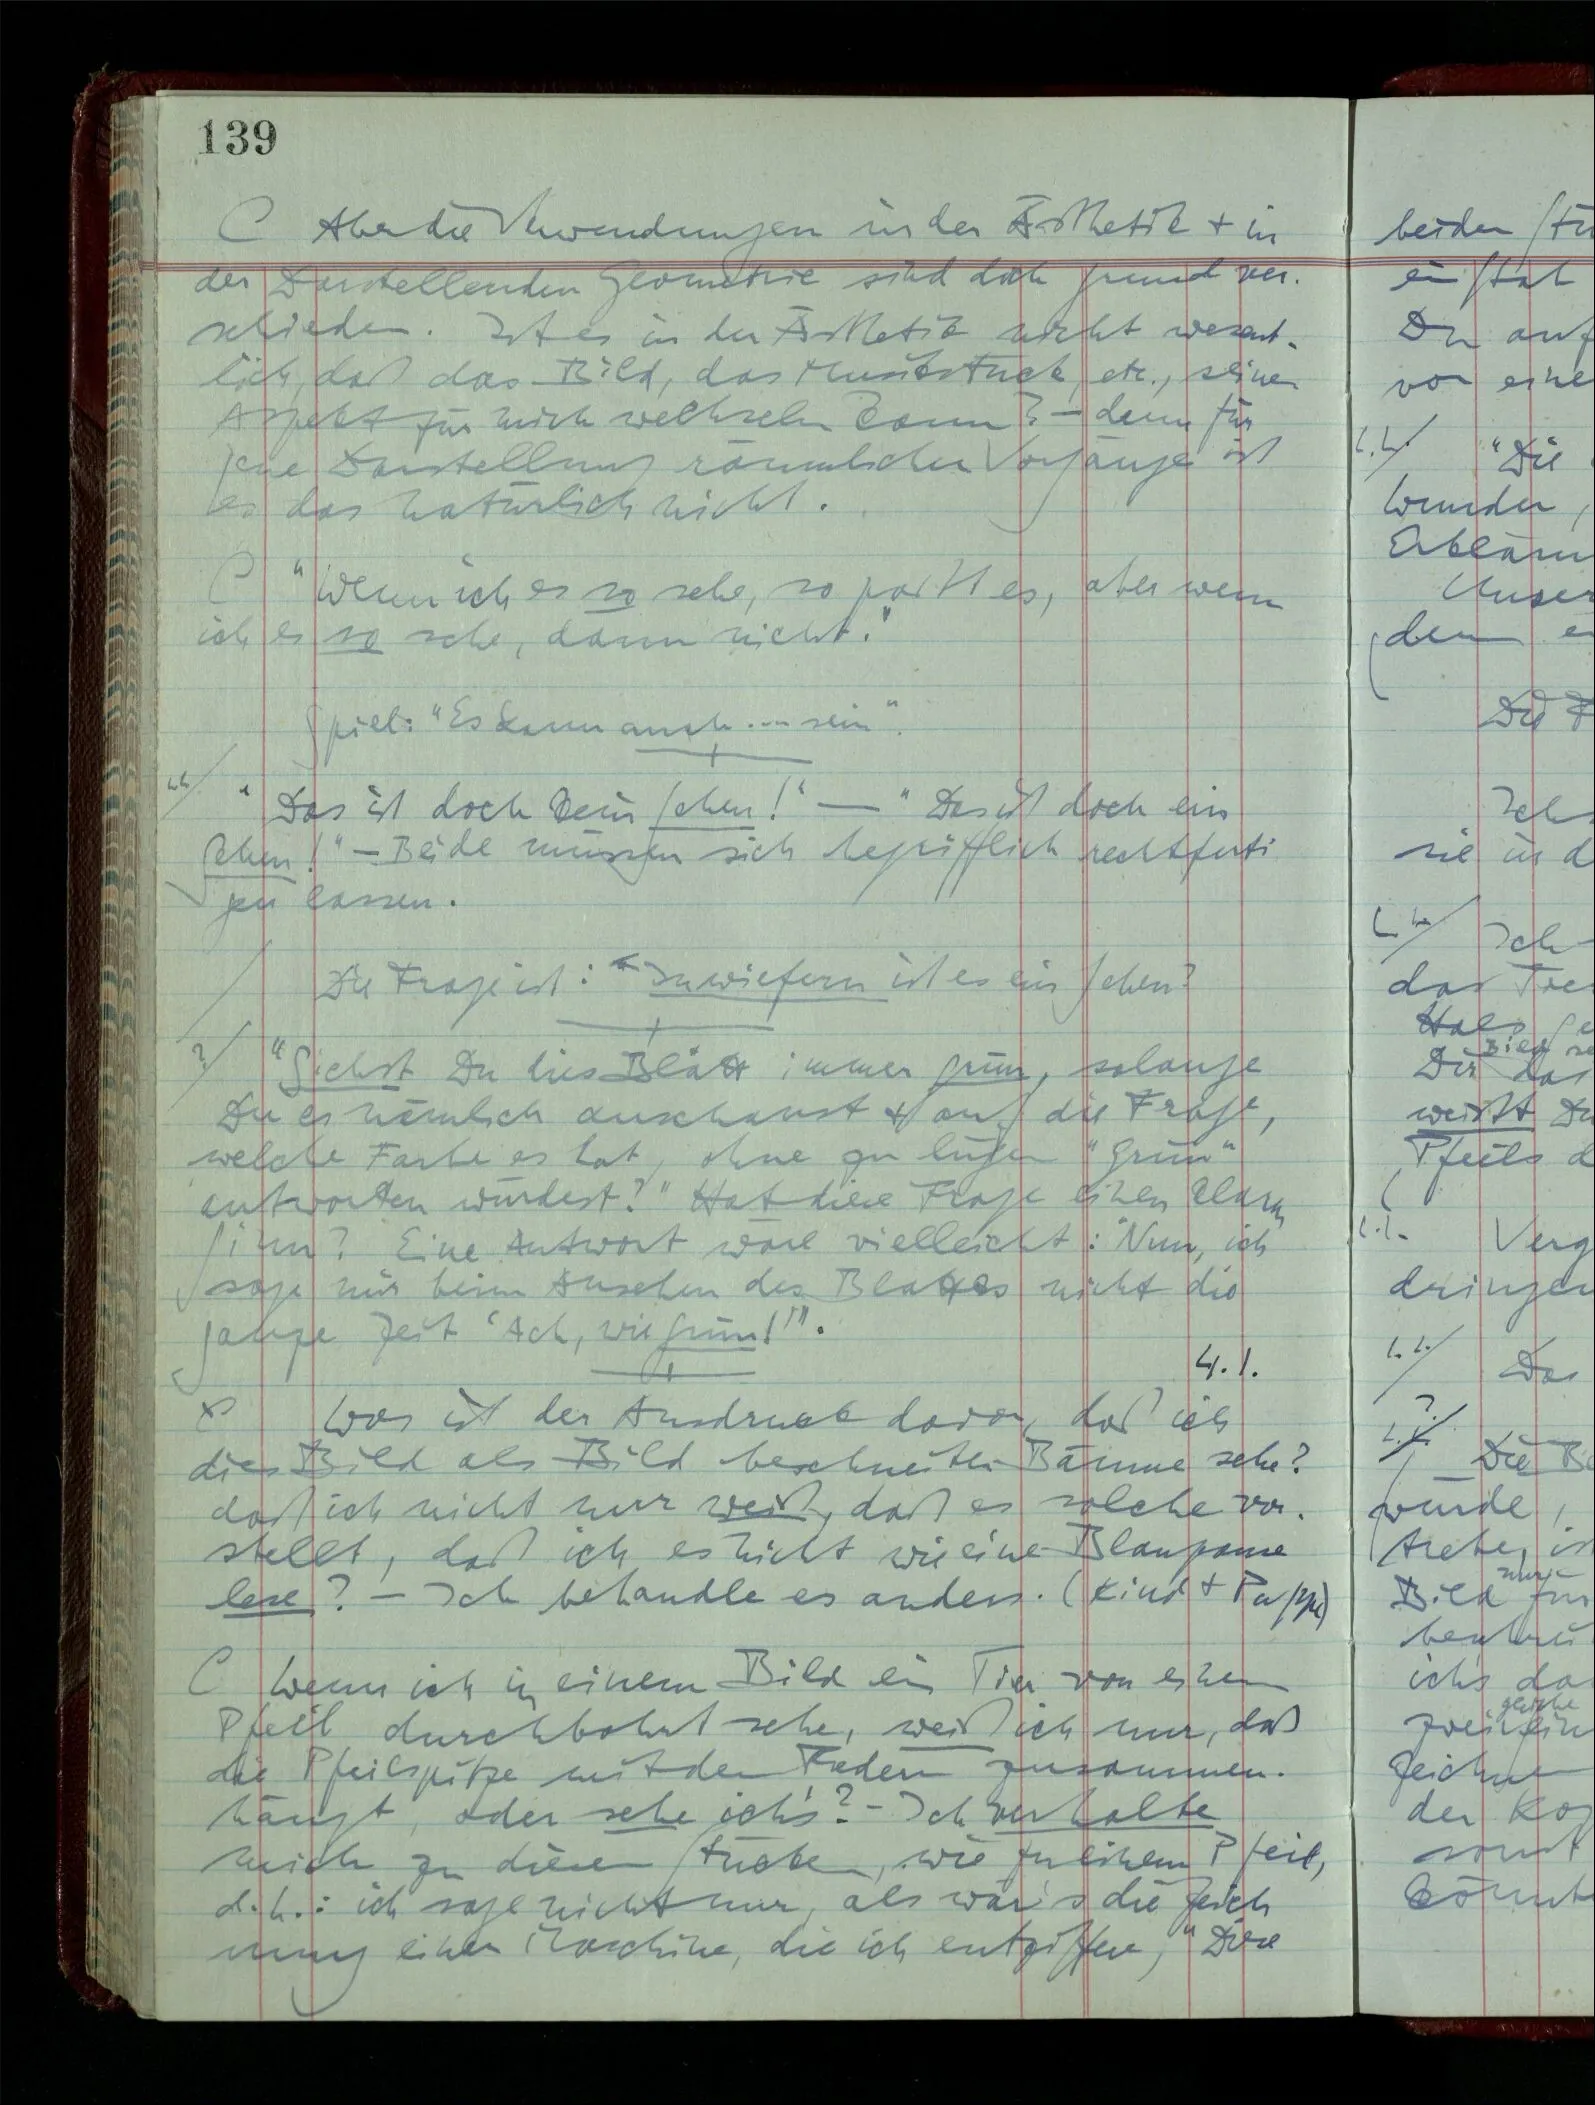 139
C Aber die Anwendungen in der Ästhetik + in
der Darstellenden Geometrie sind doch grund ver-
schieden. Ist es in der Ästhetik nicht wesent-
lich, daß das Bild, das Musikstück, etc., seinen
Aspekt für mich wechseln kann? – denn für
jene Darstellung räumlicher Vorgänge ist
es das natürlich nicht.
C "Wenn ich es so sehe, so paßt es, aber wenn
ich es so sehe, dann nicht."
Spiel: "Es kann auch ... sein".
"Das ist doch kein Sehen!" — "Das ist doch ein
Sehen!" – Beide müssen sich begrifflich rechtferti
gen lassen.
/ Die Frage ist: Inwiefern ist es ein Sehen?
?/ "Siehst Du dies Blatt immer grün, solange
Du es nämlich anschaust & auf die Frage,
welche Farbe es hat, ohne zu lügen "Grün"
antworten würdest?" Hat diese Frage einen klaren
Sinn? Eine Antwort wäre vielleicht: "Nun, ich
sage mir beim Ansehen des Blattes nicht die
ganze Zeit 'Ach, wie grün!'".
4.1.
Was ist der Ausdruck davon, daß ich
dies Bild als Bild beschneiter Bäume sehe?
daß ich nicht nur weiß, daß es solche vor-
stellt, daß ich es nicht wie eine Blaupause
lese? – Ich behandle es anders. (Kind + Puppe)
C Wenn ich in einem Bild ein Tier von einem
Pfeil durchbohrt sehe, weiß ich nur, daß
die Pfeilspitze mit den Federn zusammen-
hängt, oder sehe ich's? – Ich verhalte
mich zu diesen Stücken, wie zu einem Pfeil,
d.h.: ich sage nicht nur, als wär's die Zeich
nung einer Maschine, die ich entziffere, "Diese
beiden
ein Stab
Du auf
vor eine
"Die
Wunder,
Unser
dem
Die
Ich
sie in d
Ich
das Tier
Hals
Bild
Dir das
weißt Du
Pfeils d
Verg
dringen
Das
?
Die Bi
würde,
nur
Bild für
ich's da
gleiche
Zeichne
der Kop
sonst
könnt